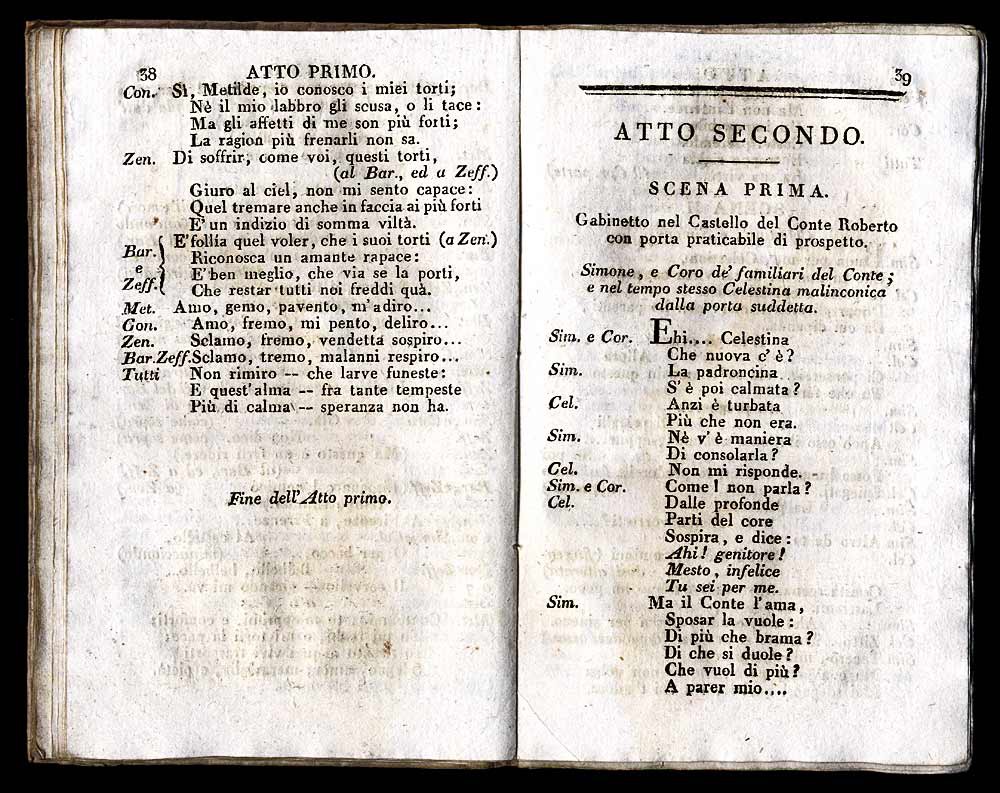 38 ATTO PRIMO.
Con. Sì, Metilde, io conosco i miei torti;
Nè il mio labbro gli scusa, o li tace:
Ma gli affetti di me son più forti;
La ragion più frenarli non sa.
Zen. Di soffrir, come voi, questi torti,
(al Bar., ed a Zeff.)
Giuro al ciel, non mi sento capace:
Quel tremare anche in faccia ai più forti
E' un indizio di somma viltà.
Bar. e Zeff. E' follía quel voler, che i suoi torti (a Zen.)
Riconosca un amante rapace:
E' ben meglio, che via se la porti,
Che restar tutti noi freddi quà.
Met. Amo, gemo, pavento, m'adiro...
Gon. Amo, fremo, mi pento, deliro...
Zen. Sclamo, fremo, vendetta sospiro...
Bar. Zeff. Sclamo, tremo, malanni respiro...
Tutti Non rimiro -- che larve funeste:
E quest'alma -- fra tante tempeste
Più di calma -- speranza non ha.
Fine dell'Atto primo.
39
ATTO SECONDO.
SCENA PRIMA.
Gabinetto nel Castello del Conte Roberto
con porta praticabile di prospetto.
Simone, e Coro de' familiari del Conte;
e nel tempo stesso Celestina malinconica
dalla porta suddetta.
Sim. e Cor. Ehi.... Celestina
Che nuova c' è?
Sim. La padroncina
S' è poi calmata?
Cel. Anzi è turbata
Più che non era.
Sim. Nè v' è maniera
Di consolarla?
Cel. Non mi risponde.
Sim. e Cor. Come! non parla?
Cel. Dalle profonde
Parti del core
Sospira, e dice:
Ahi! genitore!
Mesto, infelice
Tu sei per me.
Sim. Ma il Conte l'ama,
Sposar la vuole:
Di più che brama?
Di che si duole?
Che vuol di più?
A parer mio....